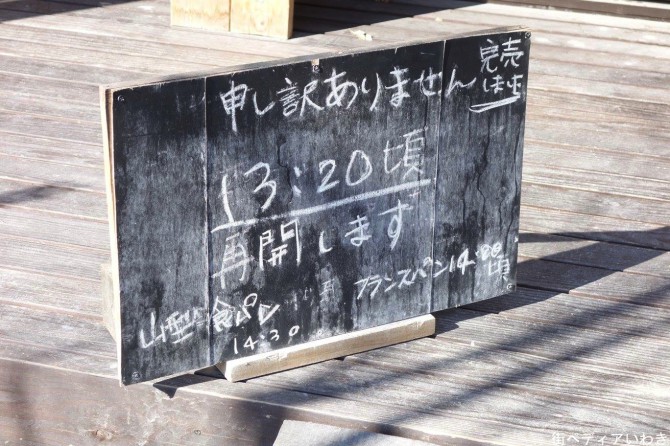 申し訳ありません
完売
しました
13:20頃
再開します
フランスパン14:00頃
山型食パン
14:30
街ペディアいわき